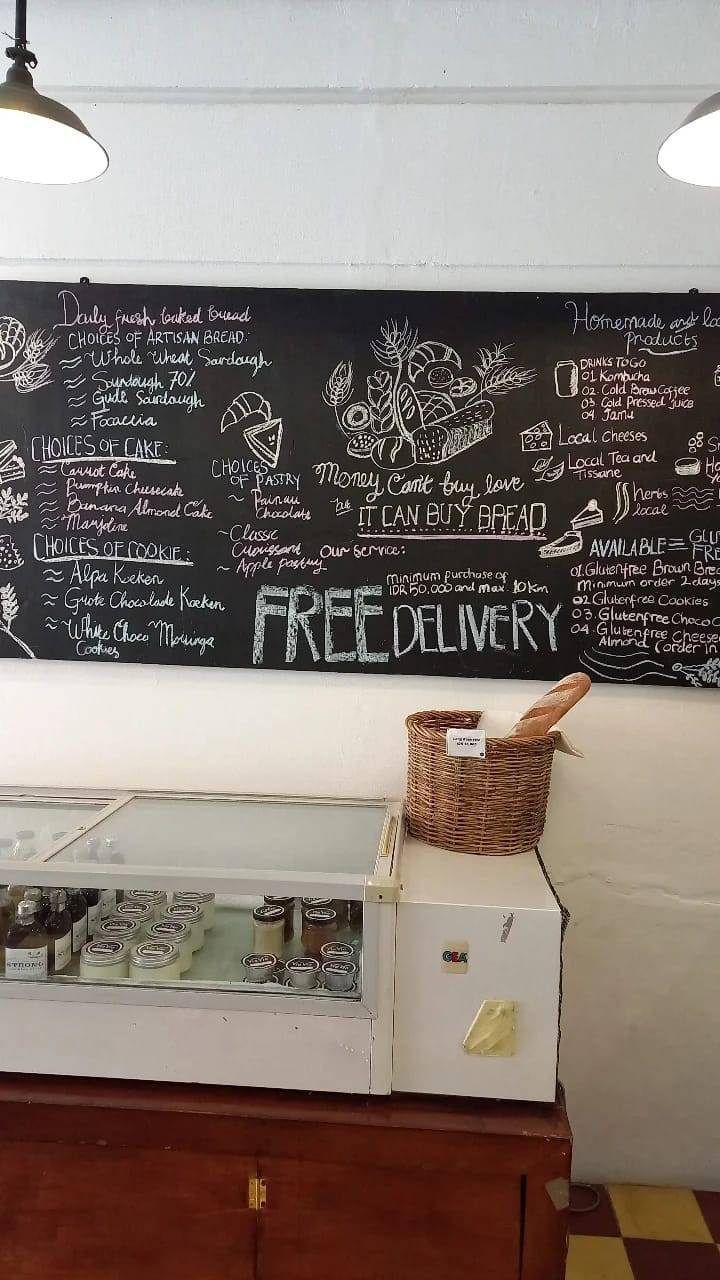 Daily fresh baked bread
CHOICES OF ARTISAN BREAD:
Whole Wheat Sourdough
Sourdough 70%
Gude Sourdough
Focaccia
CHOICES OF CAKE:
Carrot Cake
Pumpkin Cheesecake
Banana Almond Cake
Marjoline
CHOICES OF COOKIE:
Alpa Koeken
Grote Chocolade Koeken
White Choco Moringa
Cookies
CHOICES
OF PASTRY
Painau
Chocolate
Classic
Croissant
Apple pastry
Money Can't buy love
but
IT CAN BUY BREAD
Our Service:
minimum purchase of
IDR 50.000 and max. 10 Km
FREE DELIVERY
Homemade and
products
DRINKS TO GO
01 Kombucha
02. Cold Brew Coffee
03 Cold Pressed Juice
04 Jamu
Local cheeses
Local Tea and
Tissane
herbs
local
AVAILABLE =
01. Glutenfree Brown
minimum order 2 days
02 Glutenfree Cookies
03. Glutenfree Choco
04. Glutenfree Cheese
Almond (order in
STRONG
GEA